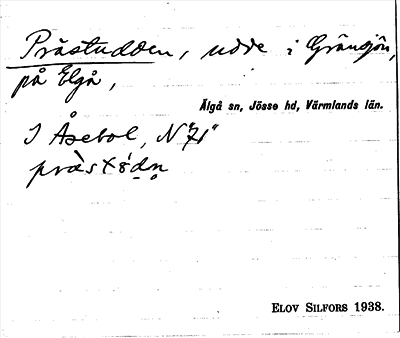 Prästudden, udde i Gränsjön,
på Elgå,
Älgå sn, Jösse hd, Värmlands län.
I Åsebol, N "71"
Elov Silfors 1938.